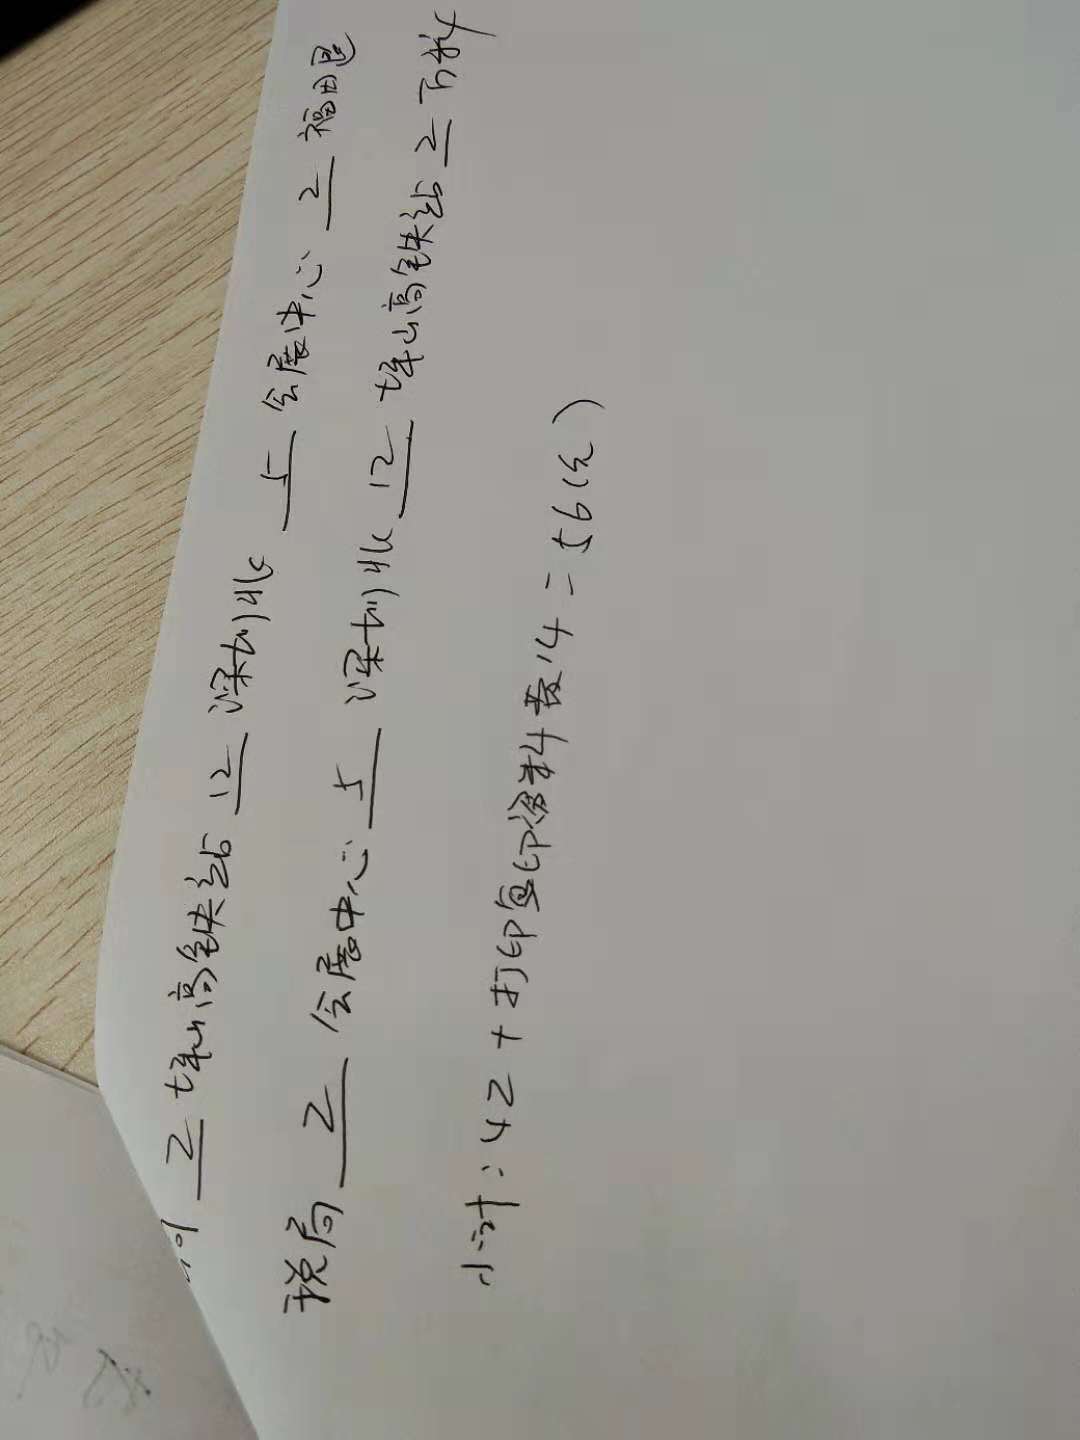 2 坪山高铁站 12 深圳北 5 会展中心 2 福田区
税局 2 会展中心 5 深圳北 12 坪山高铁站 2 万科
小计：42 + 打印复印资料费14 = 56(元)